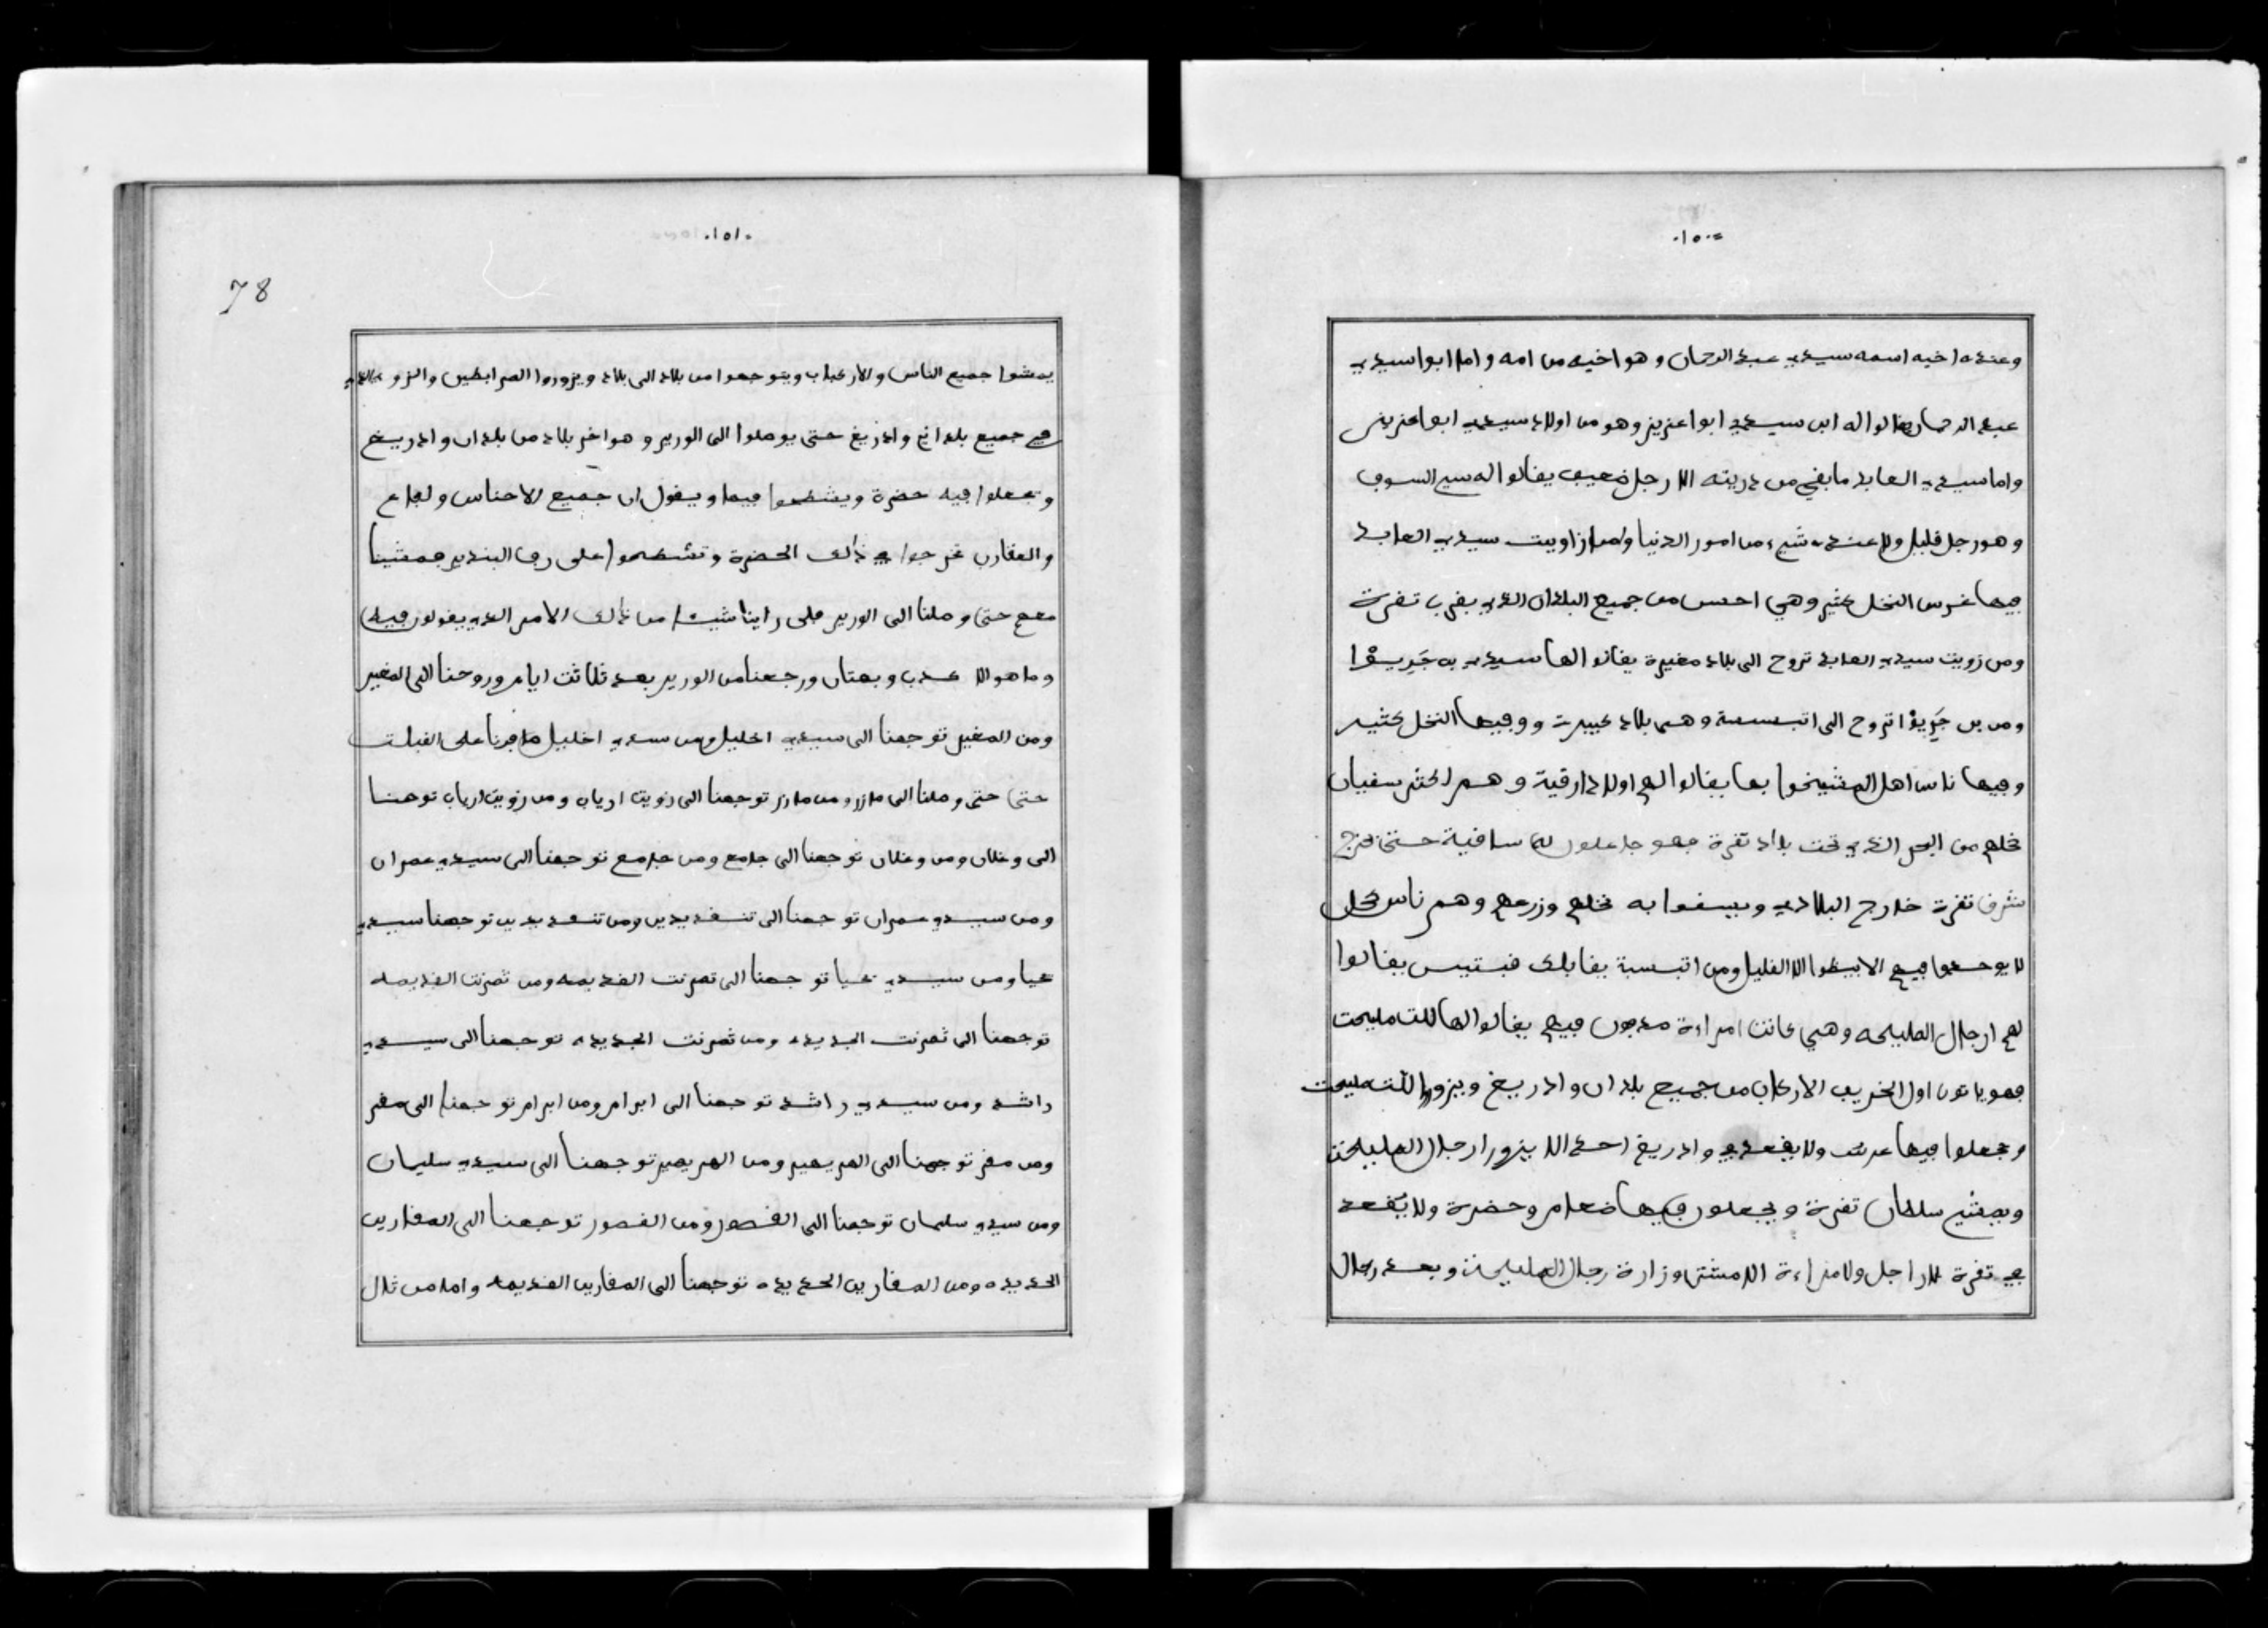 .١٥٠.
وعنده اخيه اسمه سيدي عبد الرحمان وهو اخيه من امه واما ابوا سيدي
عبد الرحمان يقالوا اله ابن سيدي ابوا عزيز وهو من اولاد سيدي ابوا عزيز
واما سيدي العابد ما بقي من دريته الا رجل ضعيف يقالوا اله سي السوفي
وهو رجل قليل ولا عنده شيء من امور الدنيا واما زاويت سيدي العابد
فيها غرس النخل كثير وهي احسن من جميع البلدان الذي بقرب تقرت
ومن زويت سيدي العابد تروح الى بلاد صغيرة يقالوا الها سيدي بن جريـو
ومن بن جريـو اتروح الى اتبسبسة وهي بلاد كبيرت ووفيها النخل كثير
وفيها ناس اهل المشيخوا بها يقالوا الهم اولاد ارقية وهم اكثر سقيان
نخلهم من البحر الذي تحت بلاد تقرة فهو جاعلون له ساقية حتى تخرج
شرق تقرت خارج البلادي ويسقوا به نخلهم وزرعهم وهم ناس كحل
لا يوجدوا فيهم الابيظ الا القليل ومن اتبسبسة يقابلك يقالوا
لهم ارجال المليحه وهي كانت امراءة مدفون فيهم يقالوا الها للت مليحت
فهو ياتون اول الخريف الاركاب من جميع بلدان وادريغ ويزوروا للت مليحت
وجعلوا فيها عرس ولا يقعد في وادريغ احد الا يزورا رجال المليحت
ويمشي سلطان تقرة ويجعلون فيها ضعام وحضرة ولا يقعد
في تقرة لا راجل ولا مراءة الا مشتى وزارة رجال المليحت وبعد رجال
.١٥١.
78
يمشوا جميع الناس والاركاب ويتوجهوا من بلاد الى بلاد ويزوروا المرابطين والنزو
في جميع بلدانهم وادريغ حتى يوصلوا الى الورير وهو اخر بلاد من بلدان وادريغ
وتجعلوا فيه حضرة ويشطحوا فيها ويقول ان جميع الاحناس ولفاع
والعقارب تخرجوا في ذالك الحضرة وتشطحوا على دف البندير فمشينا
معهم حتى وصلنا الى الورير فلم راينا شيئا من ذالك الامر الذي يقولون فيه
وما هو الا كدب وبهتان ورجعنا من الورير بعد ثلاثت ايام وروحنا الى المغير
ومن المغير توجهنا الى سيدي اخليل ومن سيدي اخليل سافرنا على القبلت
حتى حتى وصلنا الى مازر ومن مازر توجهنا الى زويت ارياب ومن زويت ارياب توجهنا
الى وغلان ومن وغلان توجهنا الى جامع ومن جامع توجهنا الى سيدي عمران
ومن سيدي عمران توجهنا الى تنقديدين ومن تنقديدين توجهنا سيدي
يحيا ومن سيدي يحيا توجهنا الى تمرنت القديمه ومن تمرنت القديمه
توجهنا الى تمرنت الجديده ومن تمرنت الجديده توجهنا الى سيدي
راشد ومن سيدي راشد توجهنا الى ابرام ومن ابرام توجهنا الى مقر
ومن مقر توجهنا الى الهريهير ومن الهريهير توجهنا الى سيدي سليمان
ومن سيدي سليمان توجهنا الى القصور ومن القصور توجهنا الى المقارين
الجديده ومن المقارين الجديده توجهنا الى المقارين القديمه واما من تلال